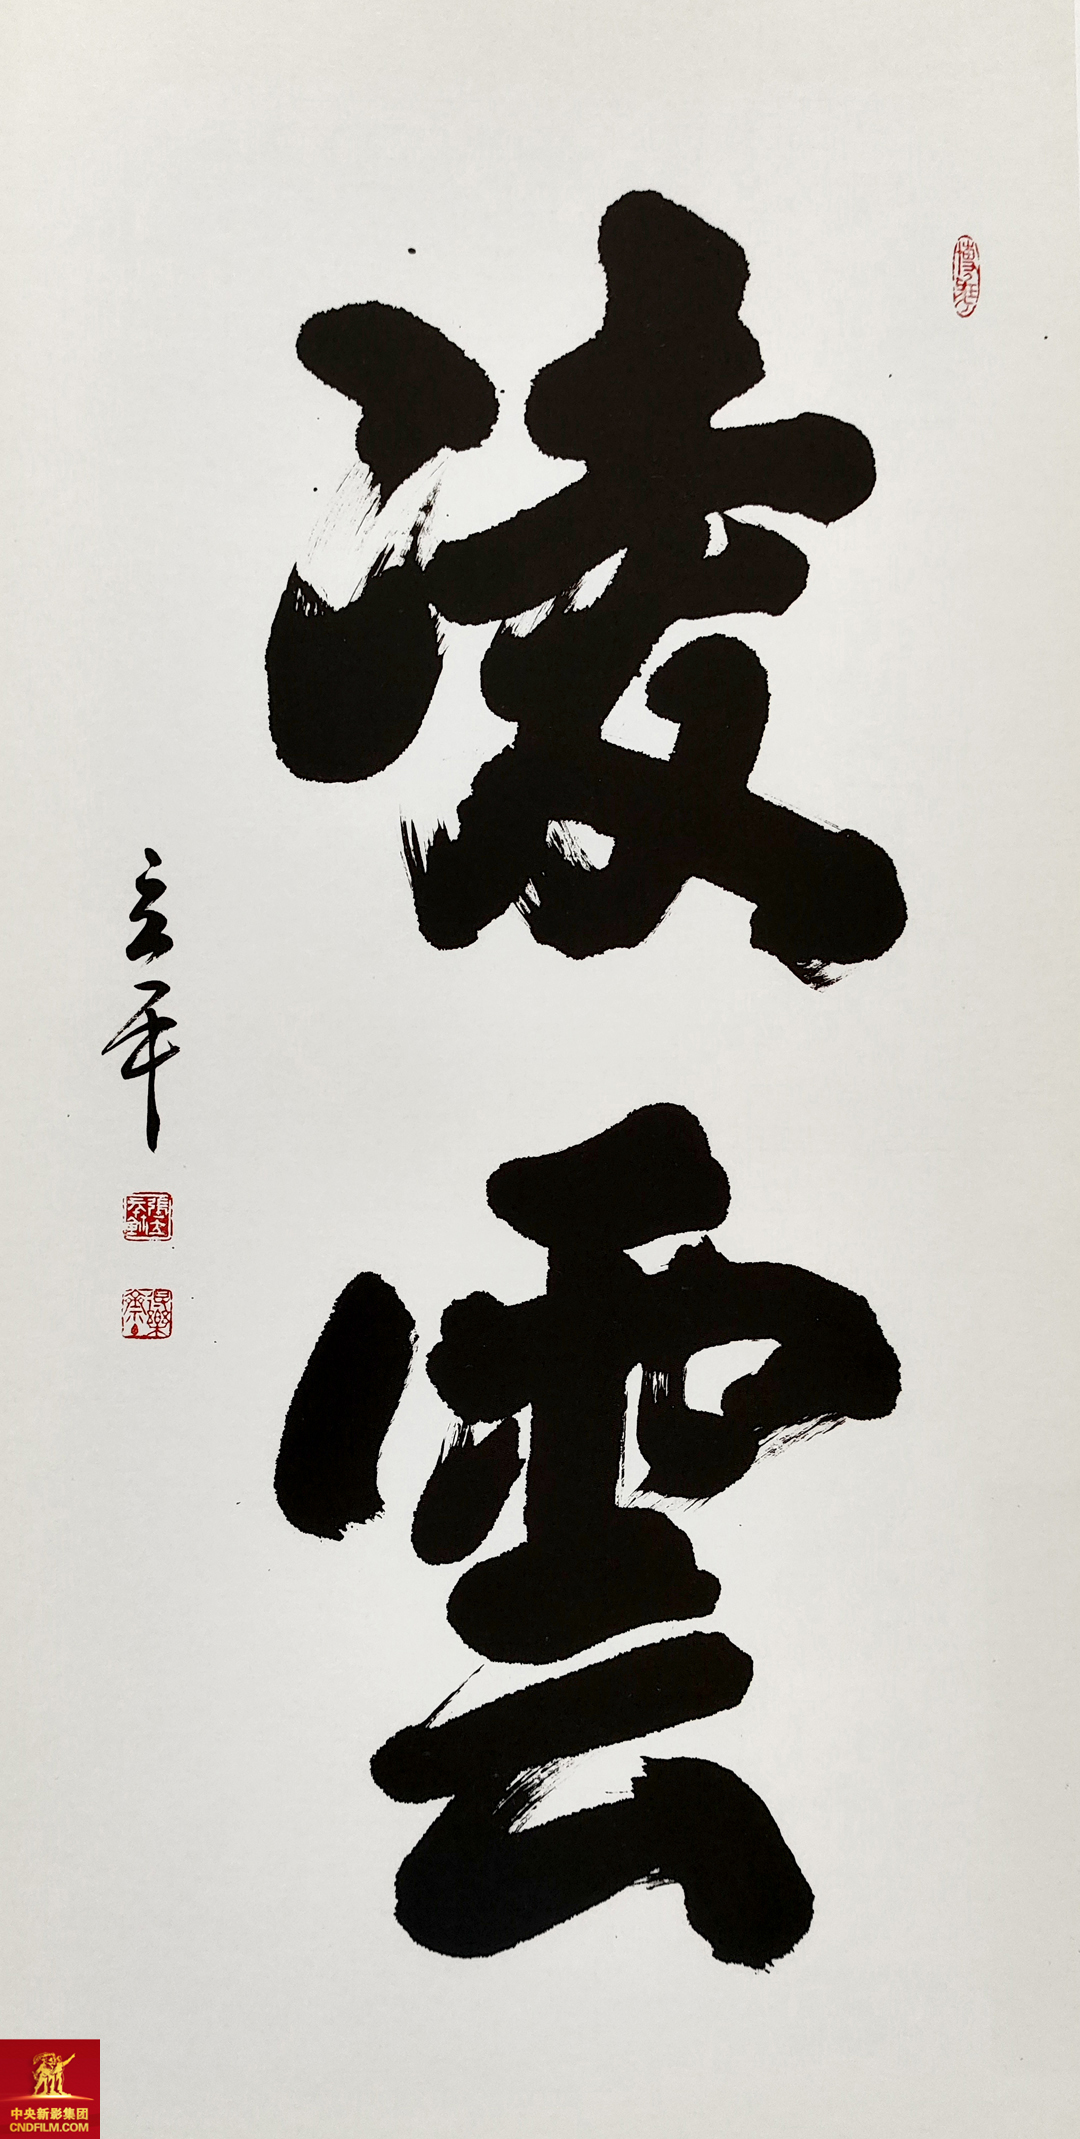 凌雲
立平
中央新影集团
CNDFILM.COM